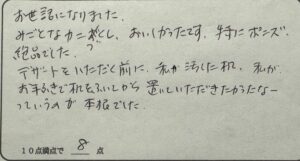 お世話になりました。
みごとなカニ づくし、おいしかったです。特にポンズ、
絶品でした。
デザートをいただく前に、私が汚した机、私が、
おてふきで机をふいてから置いていただきたかったなー
っていうのが本根でした。
10点満点で 8 点